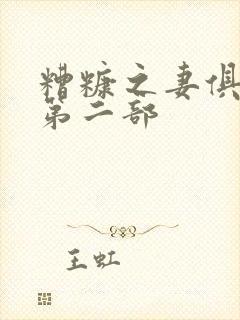 糟糠之妻俱
第二部
王虹